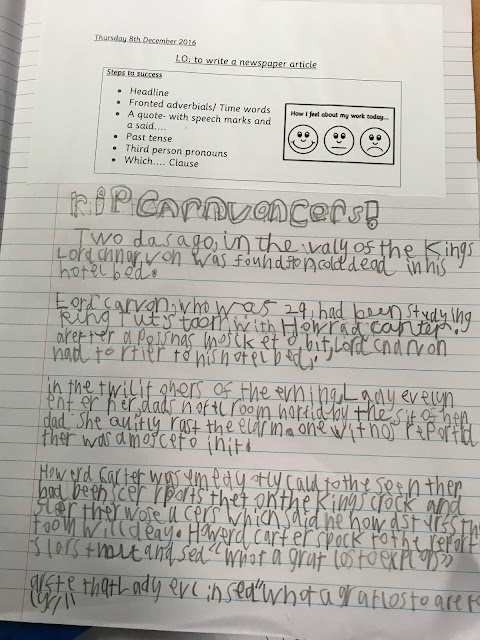 Thursday 8th December 2016
LO: to write a newspaper article
Steps to success
• Headline
• Fronted adverbials/ Time words
• A quote- with speech marks and
a said....
• Past tense
• Third person pronouns
• Which.... Clause
How I feel about my work today...
RIP Carnvoncers!
Two das ago, in the valy of the Kings
Lord chnarvon was found ston cold dead in his
hotel bed.
Lord carvon, who was 29, had been studying
King tuts toom with Howrad canter.
areter a poisnas mosket o bit, Lord cnarvon
had to rtier to his hotel bed.
in the twilit ohers of the erning, Lady evelyn
enter her dads hotel room horrid by the sit of hen
dad. she quitly rast the elarm. one witnos reportid
ther was a mosceto in it.
Howerd Carter was emedyotly cald to the seen ther
had been scer rports thet on the Kings crock and
ther wose a cers which said he how dsturss the
tooth will deay. Howerd carter spock to the report
and sed "what a grat los to explors"
arste that Lady evelin sed "what a grat los to are